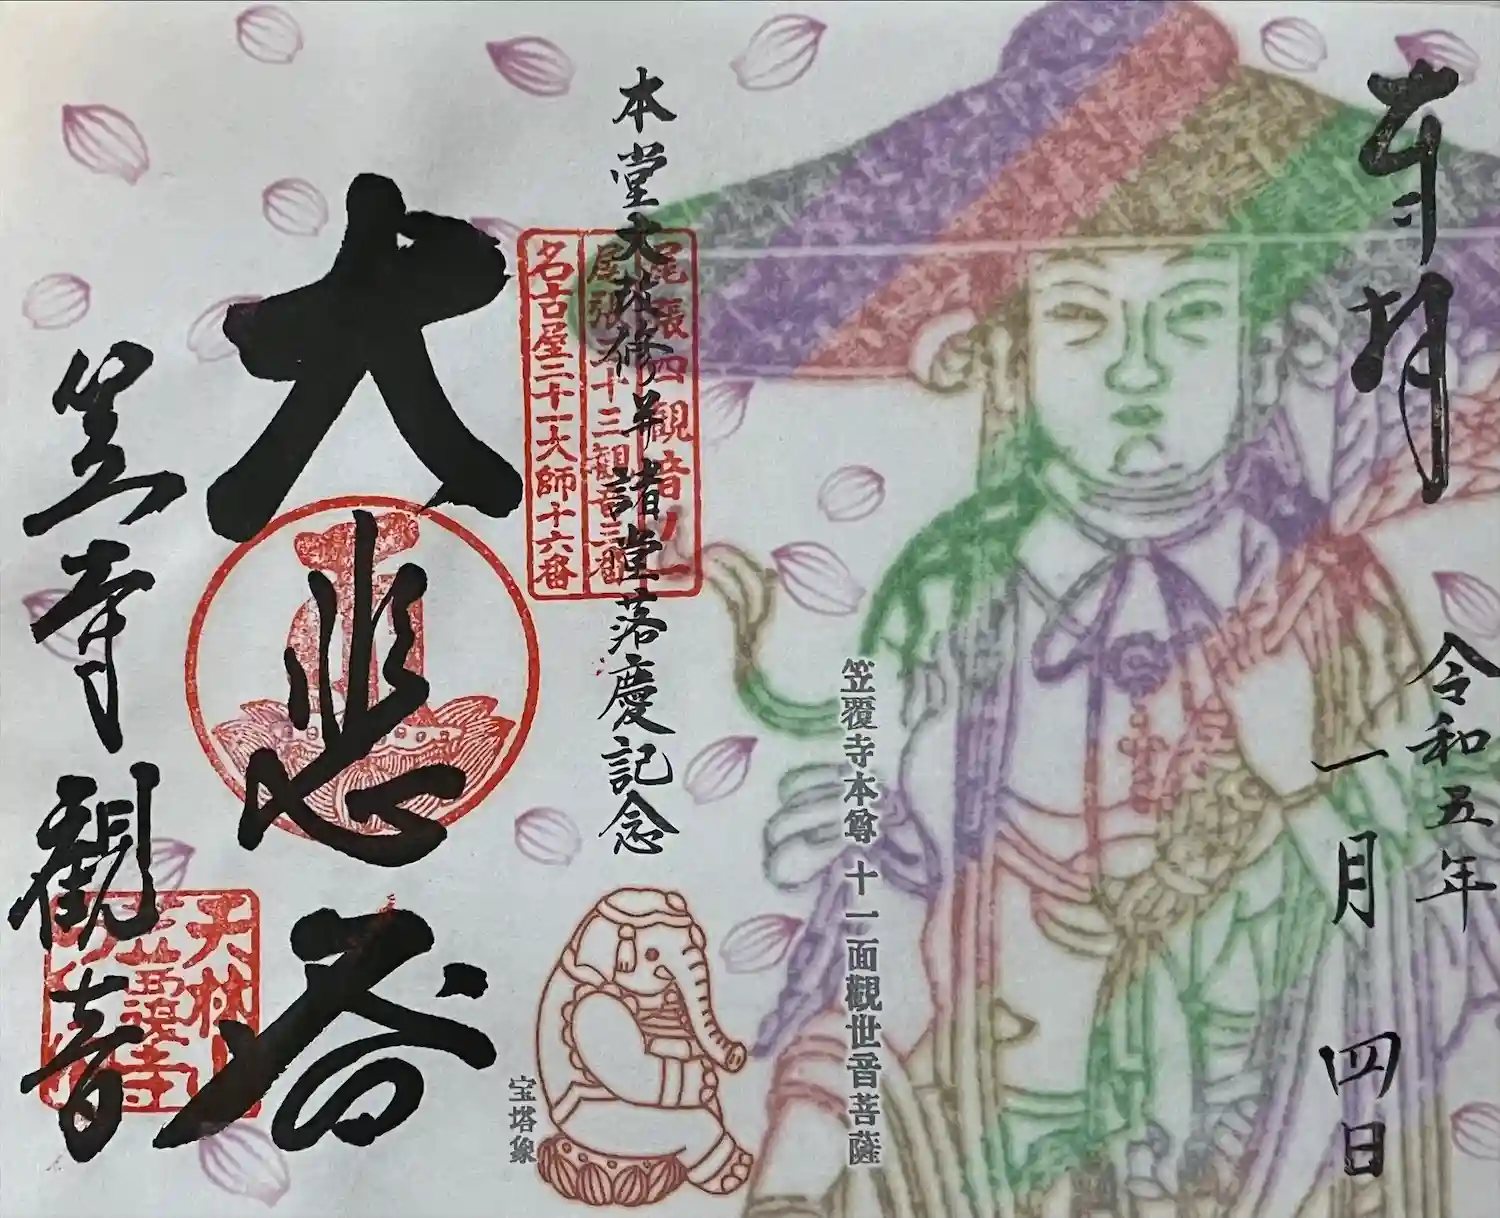 奉拝
令和五年
一月四日
笠覆寺本尊 十一面観世音菩薩
本堂大改修并諸堂落慶記念
尾張四観音ノ一
尾張三十三観音三番
名古屋二十一大師十六番
宝塔象
大悲容
笠寺観音
天林山
笠覆寺